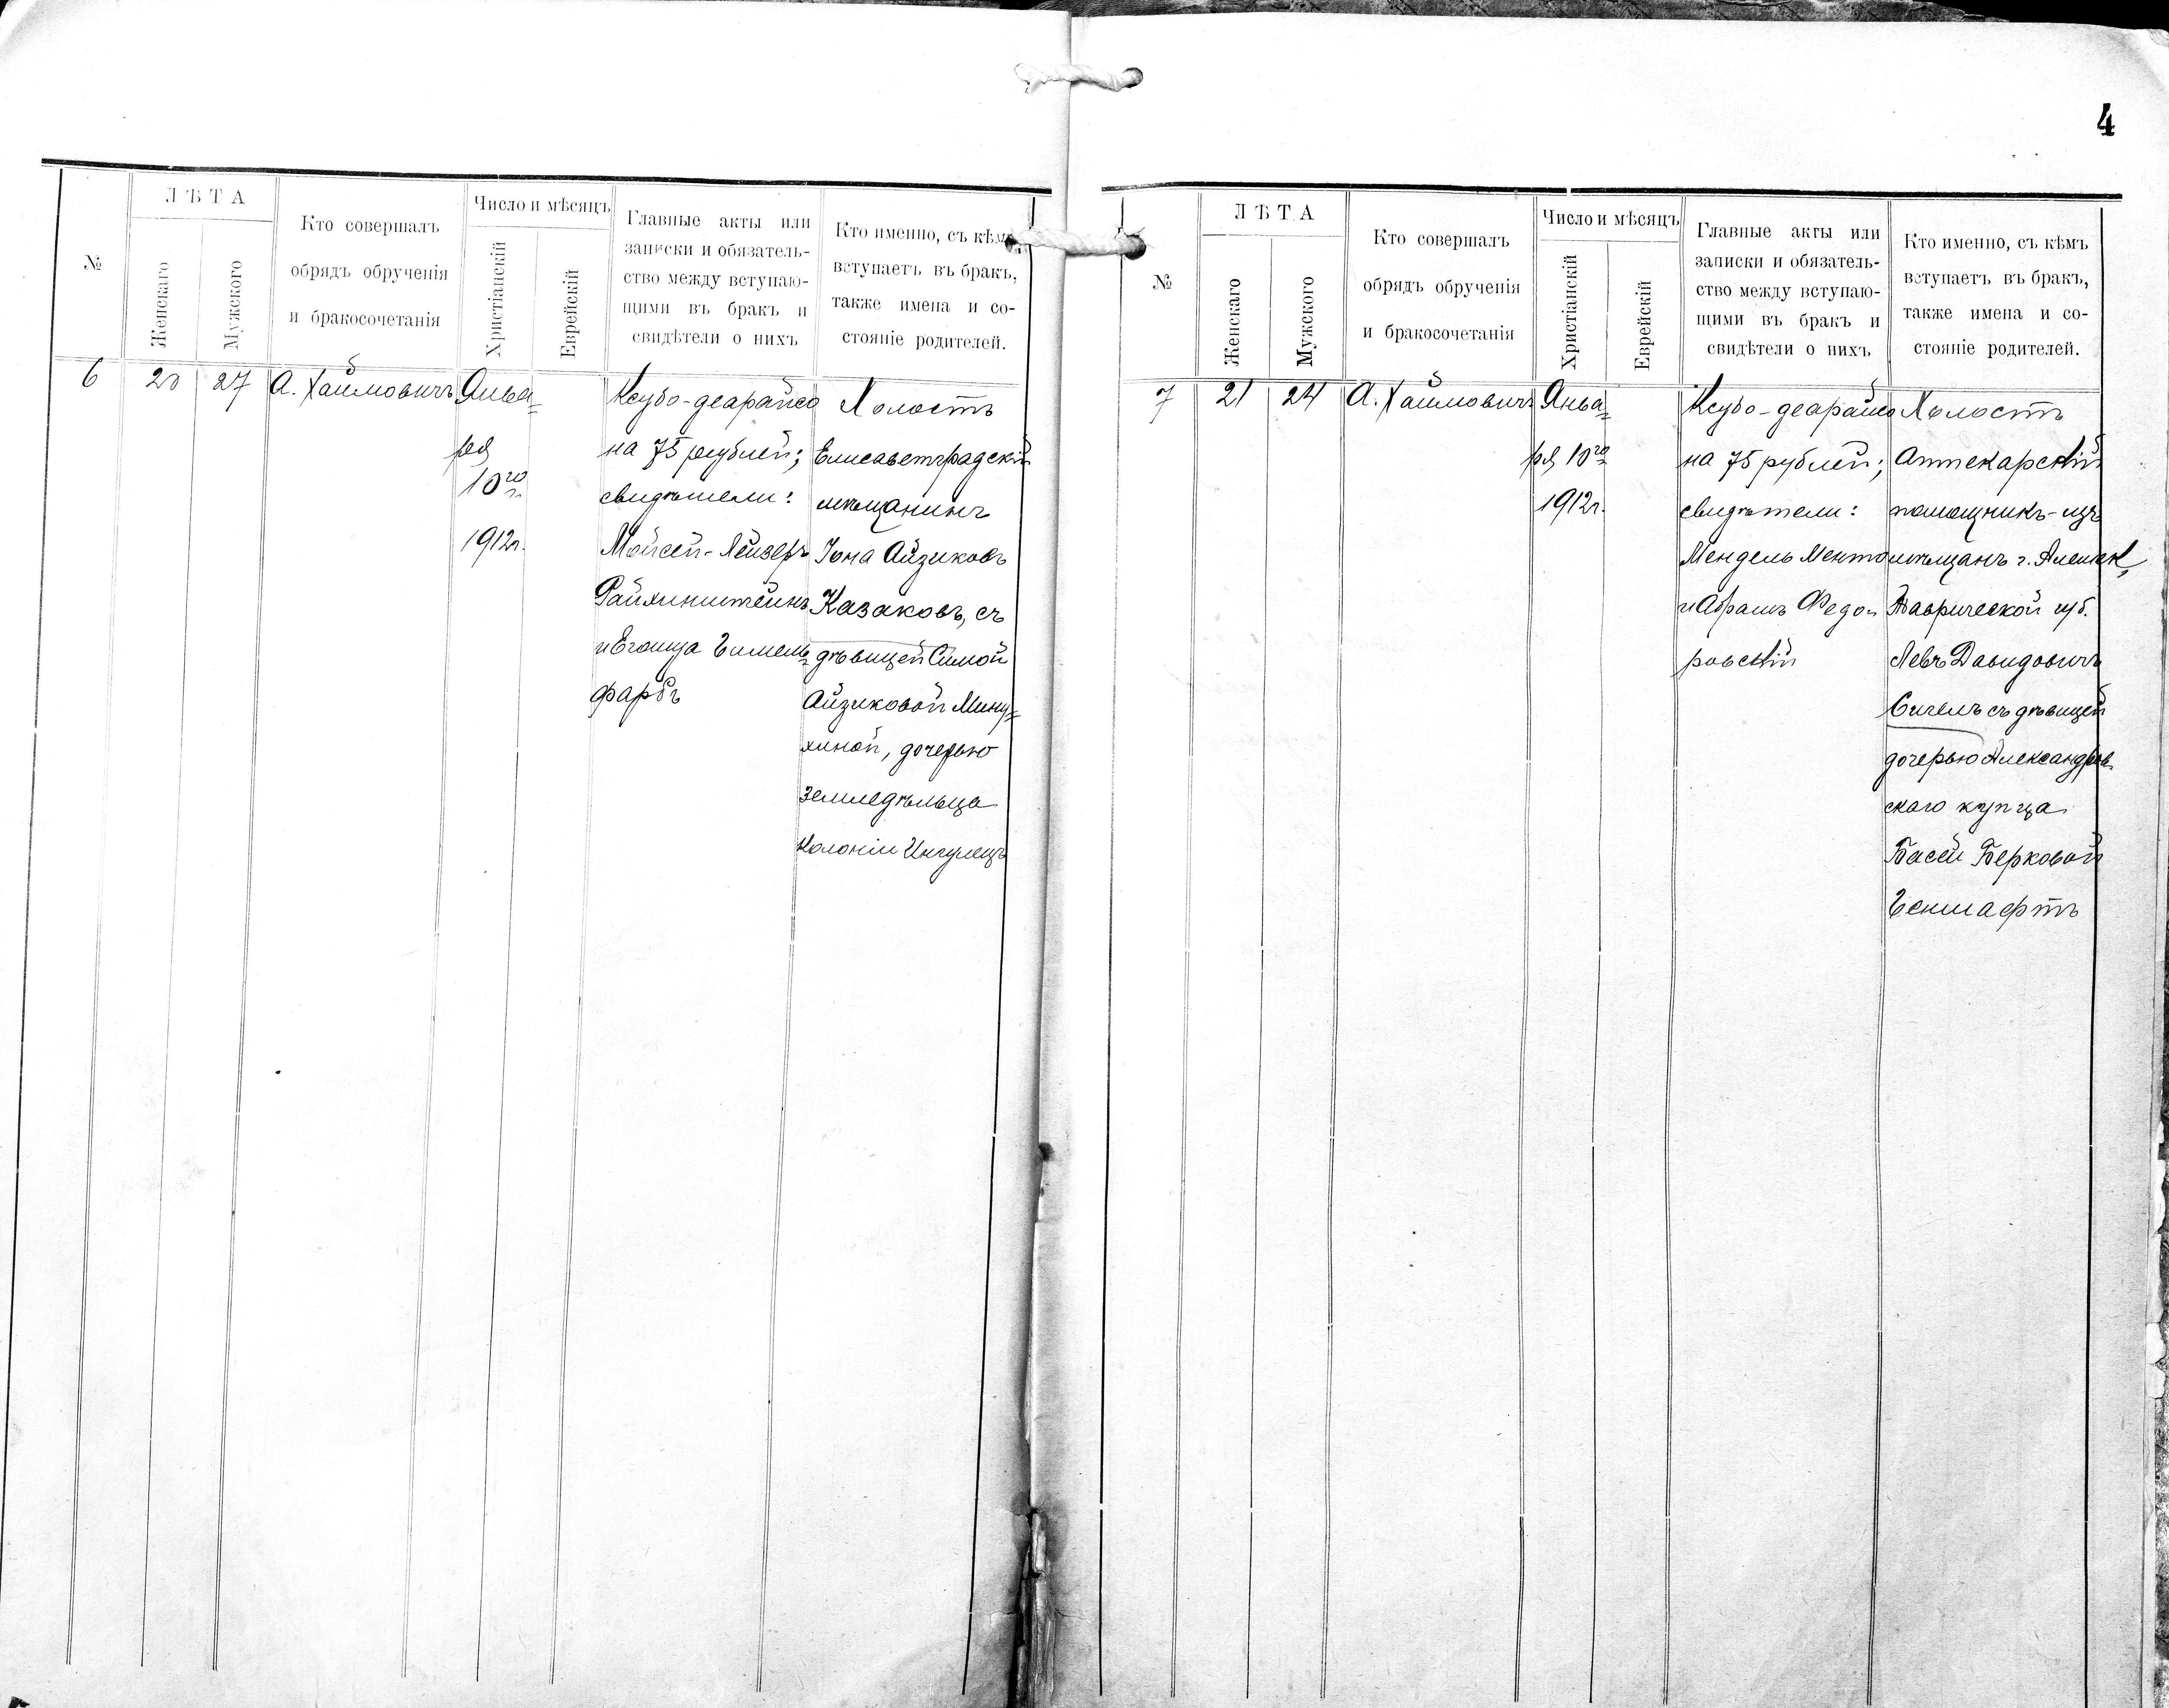 4
№
ЛѢТА
Женскаго
Мужского
Кто совершалъ
обрядъ обрученія
и бракосочетанія
Число и мѣсяцъ
Христіанскій
Еврейскій
Главные акты или
записки и обязатель-
ство между вступаю-
щими въ бракъ и
свидѣтели о нихъ
Кто именно, съ кѣмъ
вступаетъ въ бракъ,
также имена и со-
стояніе родителей.
6
20
27
А. Хаимовичъ
Янва=
ря
10го
1912г.
Ксубо-деарайсо
на 75 рублей;
свидѣтели:
Мойсей-Лейзеръ
Райхинштейнъ
и Егошуа Гимель=
фарбъ
Холостъ
Елисаветградскій
мѣщанинъ
Іона Айзиковъ
Казаковъ, съ
дѣвицей Симой
Айзиковой Мину=
хиной, дочерью
земледѣльца
колоніи Ингулецъ
№
ЛѢТА
Женскаго
Мужского
Кто совершалъ
обрядъ обрученія
и бракосочетанія
Число и мѣсяцъ
Христіанскій
Еврейскій
Главные акты или
записки и обязатель-
ство между вступаю-
щими въ бракъ и
свидѣтели о нихъ
Кто именно, съ кѣмъ
вступаетъ въ бракъ,
также имена и со-
стояніе родителей.
7
21
24
А. Хаимовичъ
Янва=
ря 10го
1912г.
Ксубо-деарайсо
на 75 рублей;
свидѣтели:
Мендель Менто
и Абрамъ Федо=
ровскій
Холостъ
Аптекарскій
помощникъ-изъ
мѣщанъ г. Алешек,
Таврической губ.
Левъ Давидовичъ
Сигелъ съ дѣвицей
дочерью Александров=
скаго купца
Басей Берковой
Геншафтъ